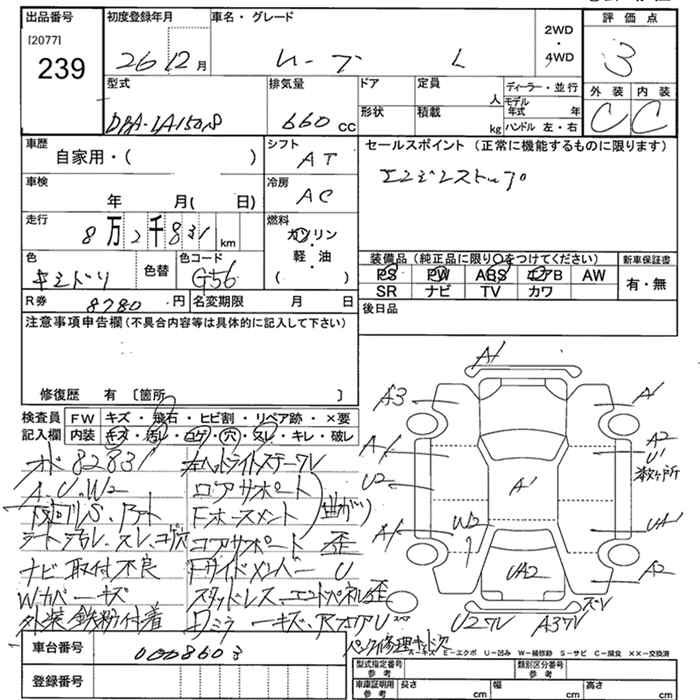 出品番号 初度登録年月 車名・グレード 2WD ・ 4WD 評価点
[2077]
239
26 12月 ムーブ L 3
型式 排気量 ドア 定員 人 ディーラー・並行 外装 内装
DBA-LA150S 660 cc 形状 積載 kg モデル年式 年 ハンドル 左・右 C C
車歴 シフト セールスポイント (正常に機能するものに限ります)
自家用・( ) AT
エコアイドルストップ
車検 冷房
年 月( 日) AC
走行 燃料
8万2千831 km ガソリン
軽・油
( )
色 色替 色コード 装備品 (純正品に限り○をつけてください) 新車保証書
キミドリ G56 PS PW ABS エアB AW 有・無
SR ナビ TV カワ
R券 8780 円 名変期限 月 日
後日品
注意事項申告欄 (不具合内容等は具体的に記入して下さい)
修復歴 有 〔箇所 〕
検査員 FW キズ・飛石・ヒビ割・リペア跡・×要
記入欄 内装 キズ・汚レ・コゲ・穴・スレ・キレ・破レ
メ 82831 ヘッドライトステー ズレ
A.U.W2 ロアサポート
下回リS. Fホースメント 曲がり
シート汚レ、スレ、コゲ穴 コアサポート 歪
ナビ取付不良 Fサイドメンバー U
Wカベキズ スタッドレス、エンドパネル歪
外装鉄粉付着 Dミラーキズ、
パンク修理キット欠
A1
A3 A1
A1 A2
U1
U2 A1 数ヶ所
W2 UA1
A1 A2
UA2
U2 A3
A-キズ E-エクボ U-凹み W-補修跡 S-サビ C-腐食 ××-交換済
車台番号 0008603
登録番号
型式指定番号 参考 類別区分番号 参考
車庫証明用 参考 長さ cm 幅 cm 高さ cm